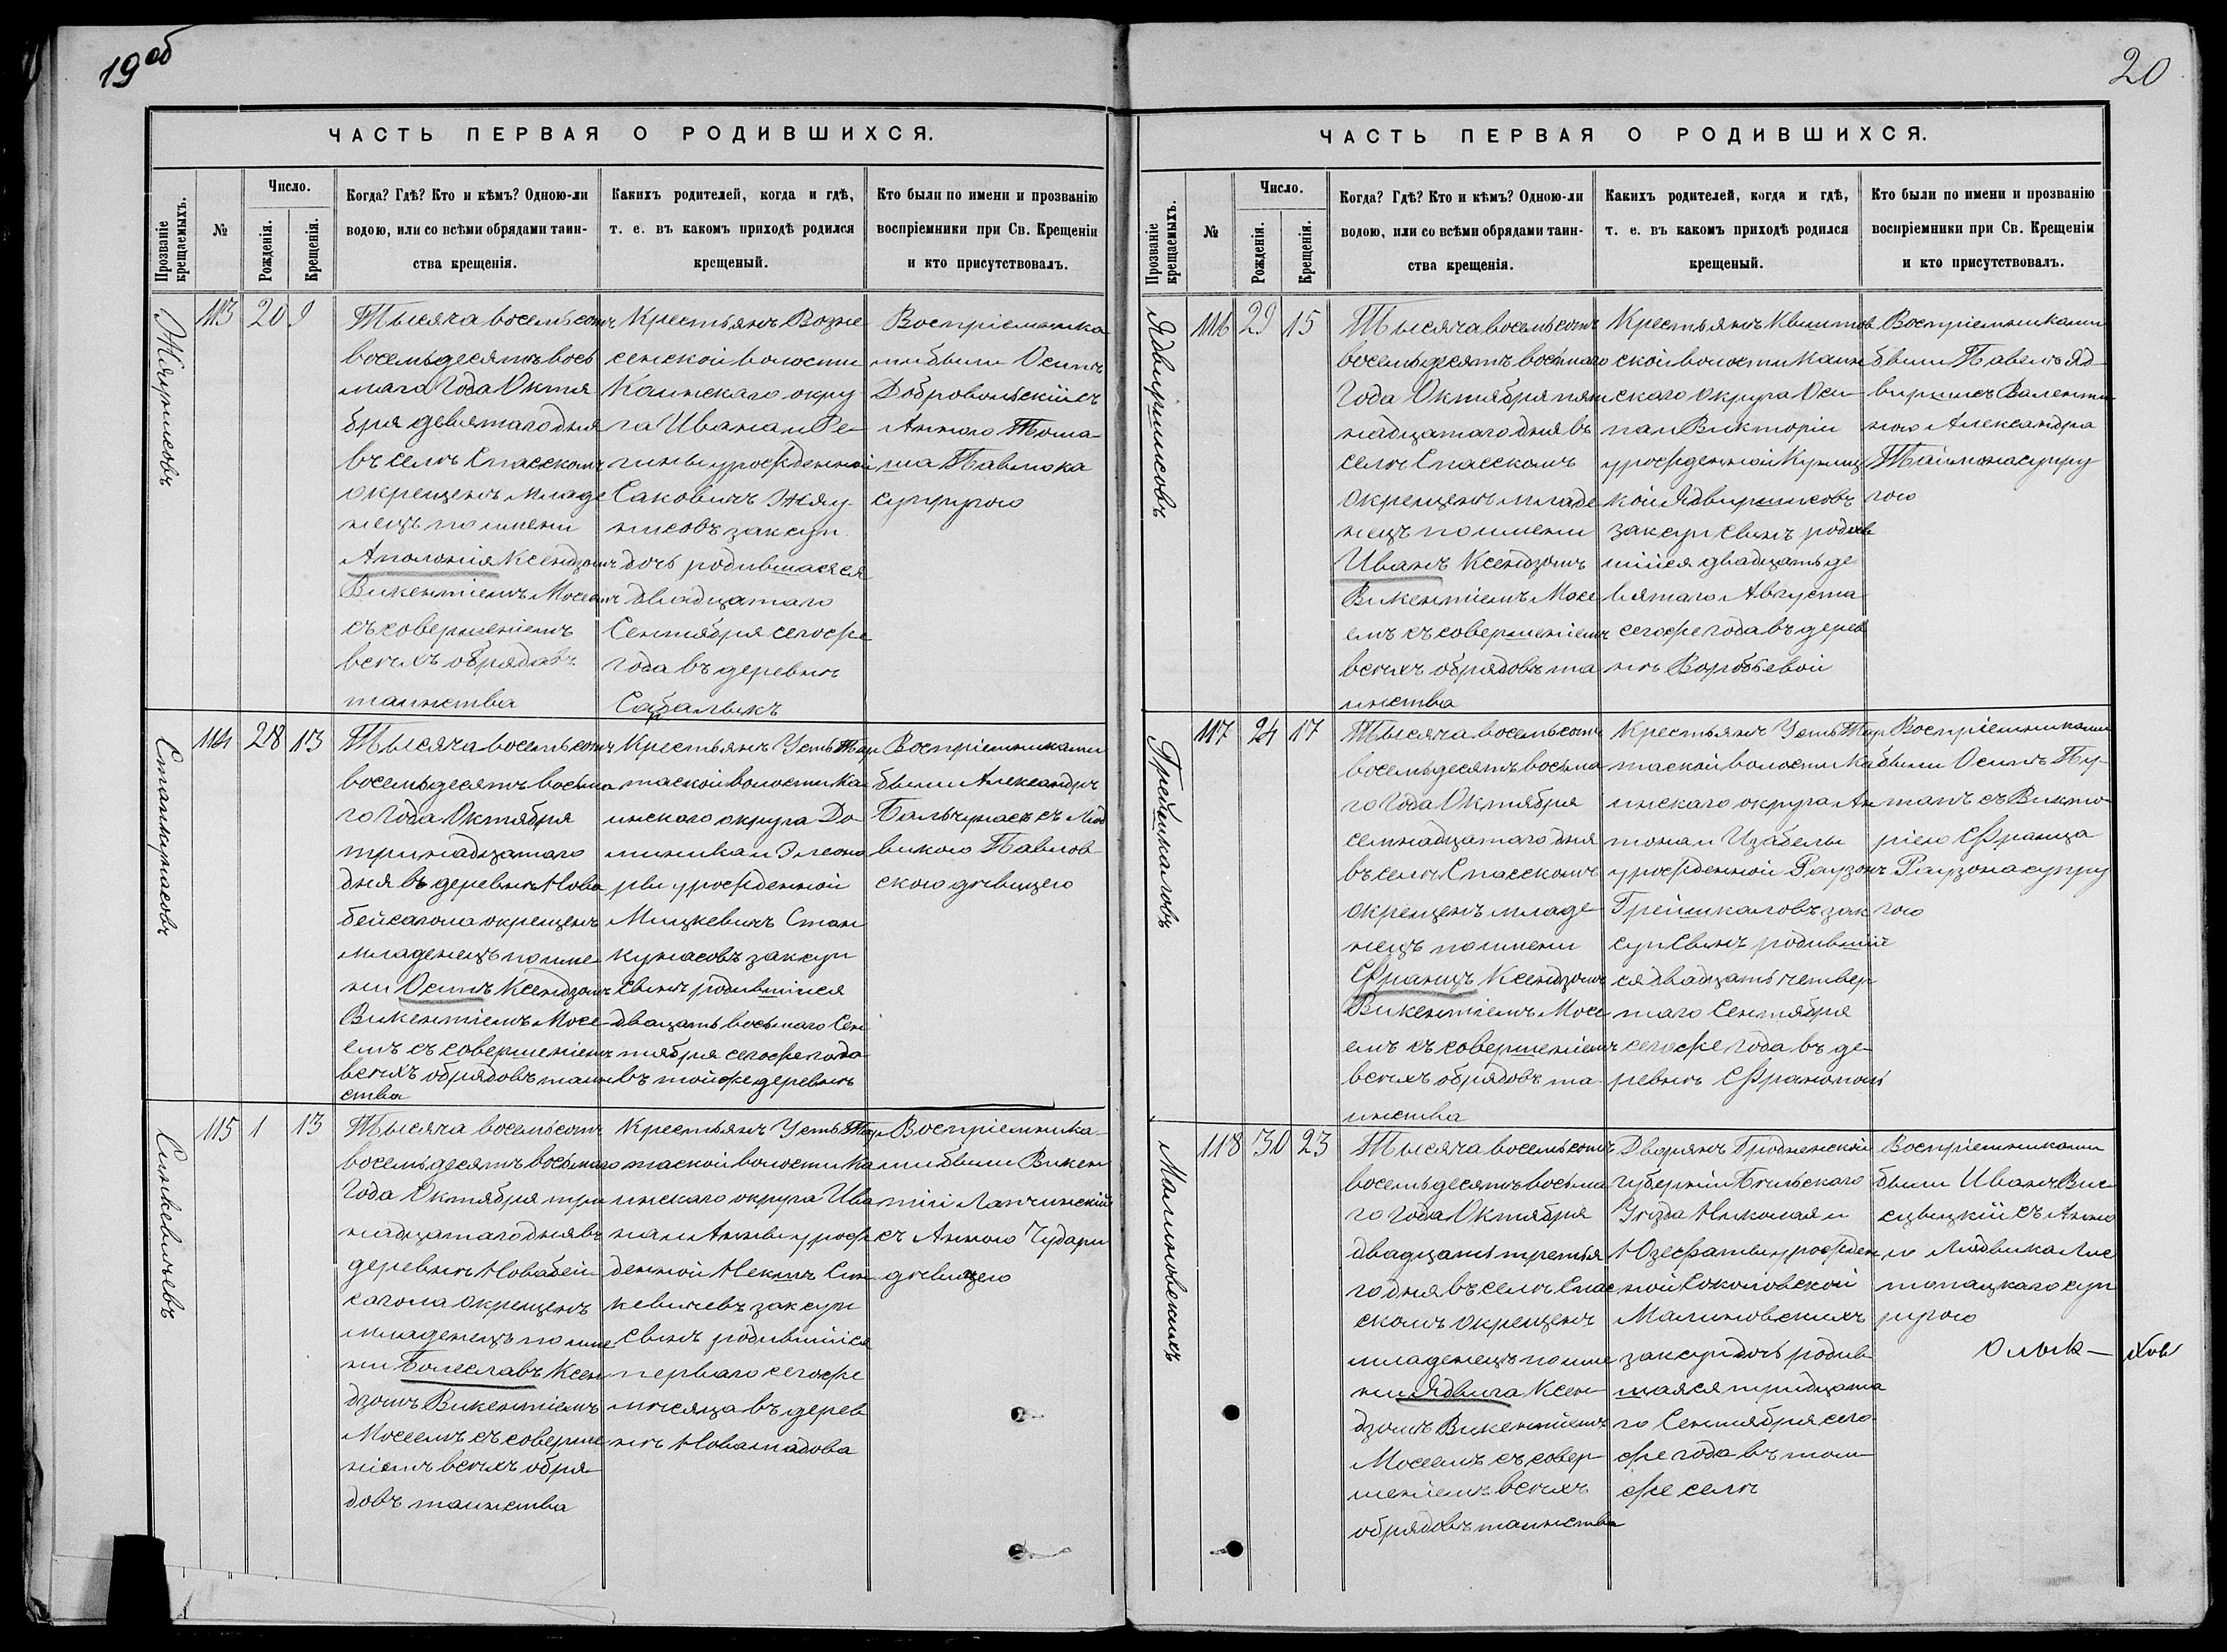 19 об
ЧАСТЬ ПЕРВАЯ О РОДИВШИХСЯ.
Прозваніе крещаемыхъ.
№
Число.
Рожденія.
Крещенія.
Когда? Гдѣ? Кто и кѣмъ? Одною-ли
водою, или со всѣми обрядами таин-
ства крещенія.
Какихъ родителей, когда и гдѣ,
т. е. въ какомъ приходѣ родился
крещеный.
Кто были по имени и прозванію
воспріемники при Св. Крещеніи
и кто присутствовалъ.
Жяунисовъ
113
20
9
Тысяча восемьсотъ
восемьдесятъ вось
мага Года Октя
бря девятаго дня
въ селѣ Спасскомъ
окрещенъ младе
нецъ по имени
Аполонія Ксендзомъ
Викентіемъ Мосеемъ
съ совершеніемъ
всѣхъ обрядовъ
таинства
Крестьянъ Возне
сенской волости
Каинскаго окру
га Ивана и Ре-
гины урожденной
Саковичъ Жяу-
нисовъ зак. суп.
дочь родившаяся
двадцатаго
Сентября сегоже
года въ деревнѣ
Воспріемника
ми были Осипъ
Добровольскій съ
Анною Тома-
ша Павлюка
супругою
Станкунасовъ
114
28
13
Тысяча восемьсотъ
восемьдесятъ восьма
го Года Октября
тринадцатаго
дня въ деревнѣ Нова
бейсагола окрещенъ
младенецъ по име
ни Осипъ Ксендзомъ
Викентіемъ Мосе
емъ съ совершеніемъ
всѣхъ обрядовъ таин
ства
Крестьянъ Усть Тар
таской волости Ка
инскаго округа До-
миника и Элеоно
ры урожденной
Мицкевичъ Стан
кунасовъ зак суп
Сынъ родившійся
двацать восьмаго Сен
тября сегоже года
въ тойже деревнѣ
Воспріемниками
были Александръ
Бальчунасъ съ Люд
викою Павлов-
скою дѣвицею
Синкевичевъ
115
1
13
Тысяча восемьсотъ
восемьдесятъ восьмаго
Года Октября три
надцатаго дня въ
деревнѣ Новабей
сагола окрещенъ
младенецъ по име
ни Болеславъ Ксен
дзомъ Викентіемъ
Мосеемъ съ соверше
ніемъ всѣхъ обря-
довъ таинства
Крестьянъ Усть Тар
таской волости Ка
инскаго округа Ива
на и Анны урож
денной Некшъ Син
кевичевъ зак суп
Сынъ родившійся
перваго сегоже
мѣсяца въ дерев
Воспріемника-
ми были Викен
тій Лапчинскій
съ Анною Чудари
дѣвицею
20
ЧАСТЬ ПЕРВАЯ О РОДИВШИХСЯ.
Прозваніе крещаемыхъ.
№
Число.
Рожденія.
Крещенія.
Когда? Гдѣ? Кто и кѣмъ? Одною-ли
водою, или со всѣми обрядами таин-
ства крещенія.
Какихъ родителей, когда и гдѣ,
т. е. въ какомъ приходѣ родился
крещеный.
Кто были по имени и прозванію
воспріемники при Св. Крещеніи
и кто присутствовалъ.
Ядвиршисовъ
116
29
15
Тысяча восемьсотъ
восемьдесятъ восьмаго
Года Октября пят
надцатаго дня въ
селѣ Спасскомъ
окрещенъ младе
нецъ по имени
Иванъ Ксендзомъ
Викентіемъ Мосе
емъ съ совершеніемъ
всѣхъ обрядовъ та
инства
Крестьянъ Квштов
ской волости Каин
скаго округа Оси-
па и Викторіи
урожденной Куниц
кой Ядвиршисовъ
зак суп Сынъ родив
шійся двадцать де
вятаго Августа
сегоже года въ дерев
нѣ Воробьевой
Воспріемниками
были Павелъ Яд-
виршисъ Валенти
ною Александра
супру
гою
Грейшкаловъ
117
24
17
Тысяча восемьсотъ
восемьдесятъ восьма
го Года Октября
семнадцатаго дня
въ селѣ Спасскомъ
окрещенъ младе-
нецъ по имени
Францъ Ксендзомъ
Викентіемъ Мосе
емъ съ совершеніемъ
всѣхъ обрядовъ та-
инства
Крестьянъ Усть Тар
таской волости Ка
инскаго округа Ан
тона и Изабелы
урожденной Раузонъ
Грейшкаловъ зак
суп Сынъ родившій
ся двадцать четвер
таго Сентября
сегоже Года въ де-
ревнѣ Франополь
Воспріемниками
были Осипъ Пу-
танъ съ Викто-
ріею Франца
Раузона супру
гою
Малиновскихъ
118
30
23
Тысяча восемьсотъ
восемьдесятъ восьма
го Года Октября
двадцать третья
го дня въ селѣ Спас
скомъ окрещенъ
младенецъ по име
ни Ядвига Ксен-
дзомъ Викентіемъ
Мосеемъ съ совер-
шеніемъ всѣхъ
обрядовъ таинства
Дворянъ Гродненской
губерніи Бѣльскаго
Уѣзда Николая и
Юзефаты урожден
ной Соколовской
Малиновскихъ
зак суп дочь родив-
шаяся тридцата
го Сентября сего
же года въ том-
же селѣ
Воспріемниками
были Иванъ Вис-
съ Анно
ю Людвика Лис
топацкаго суп
ругою